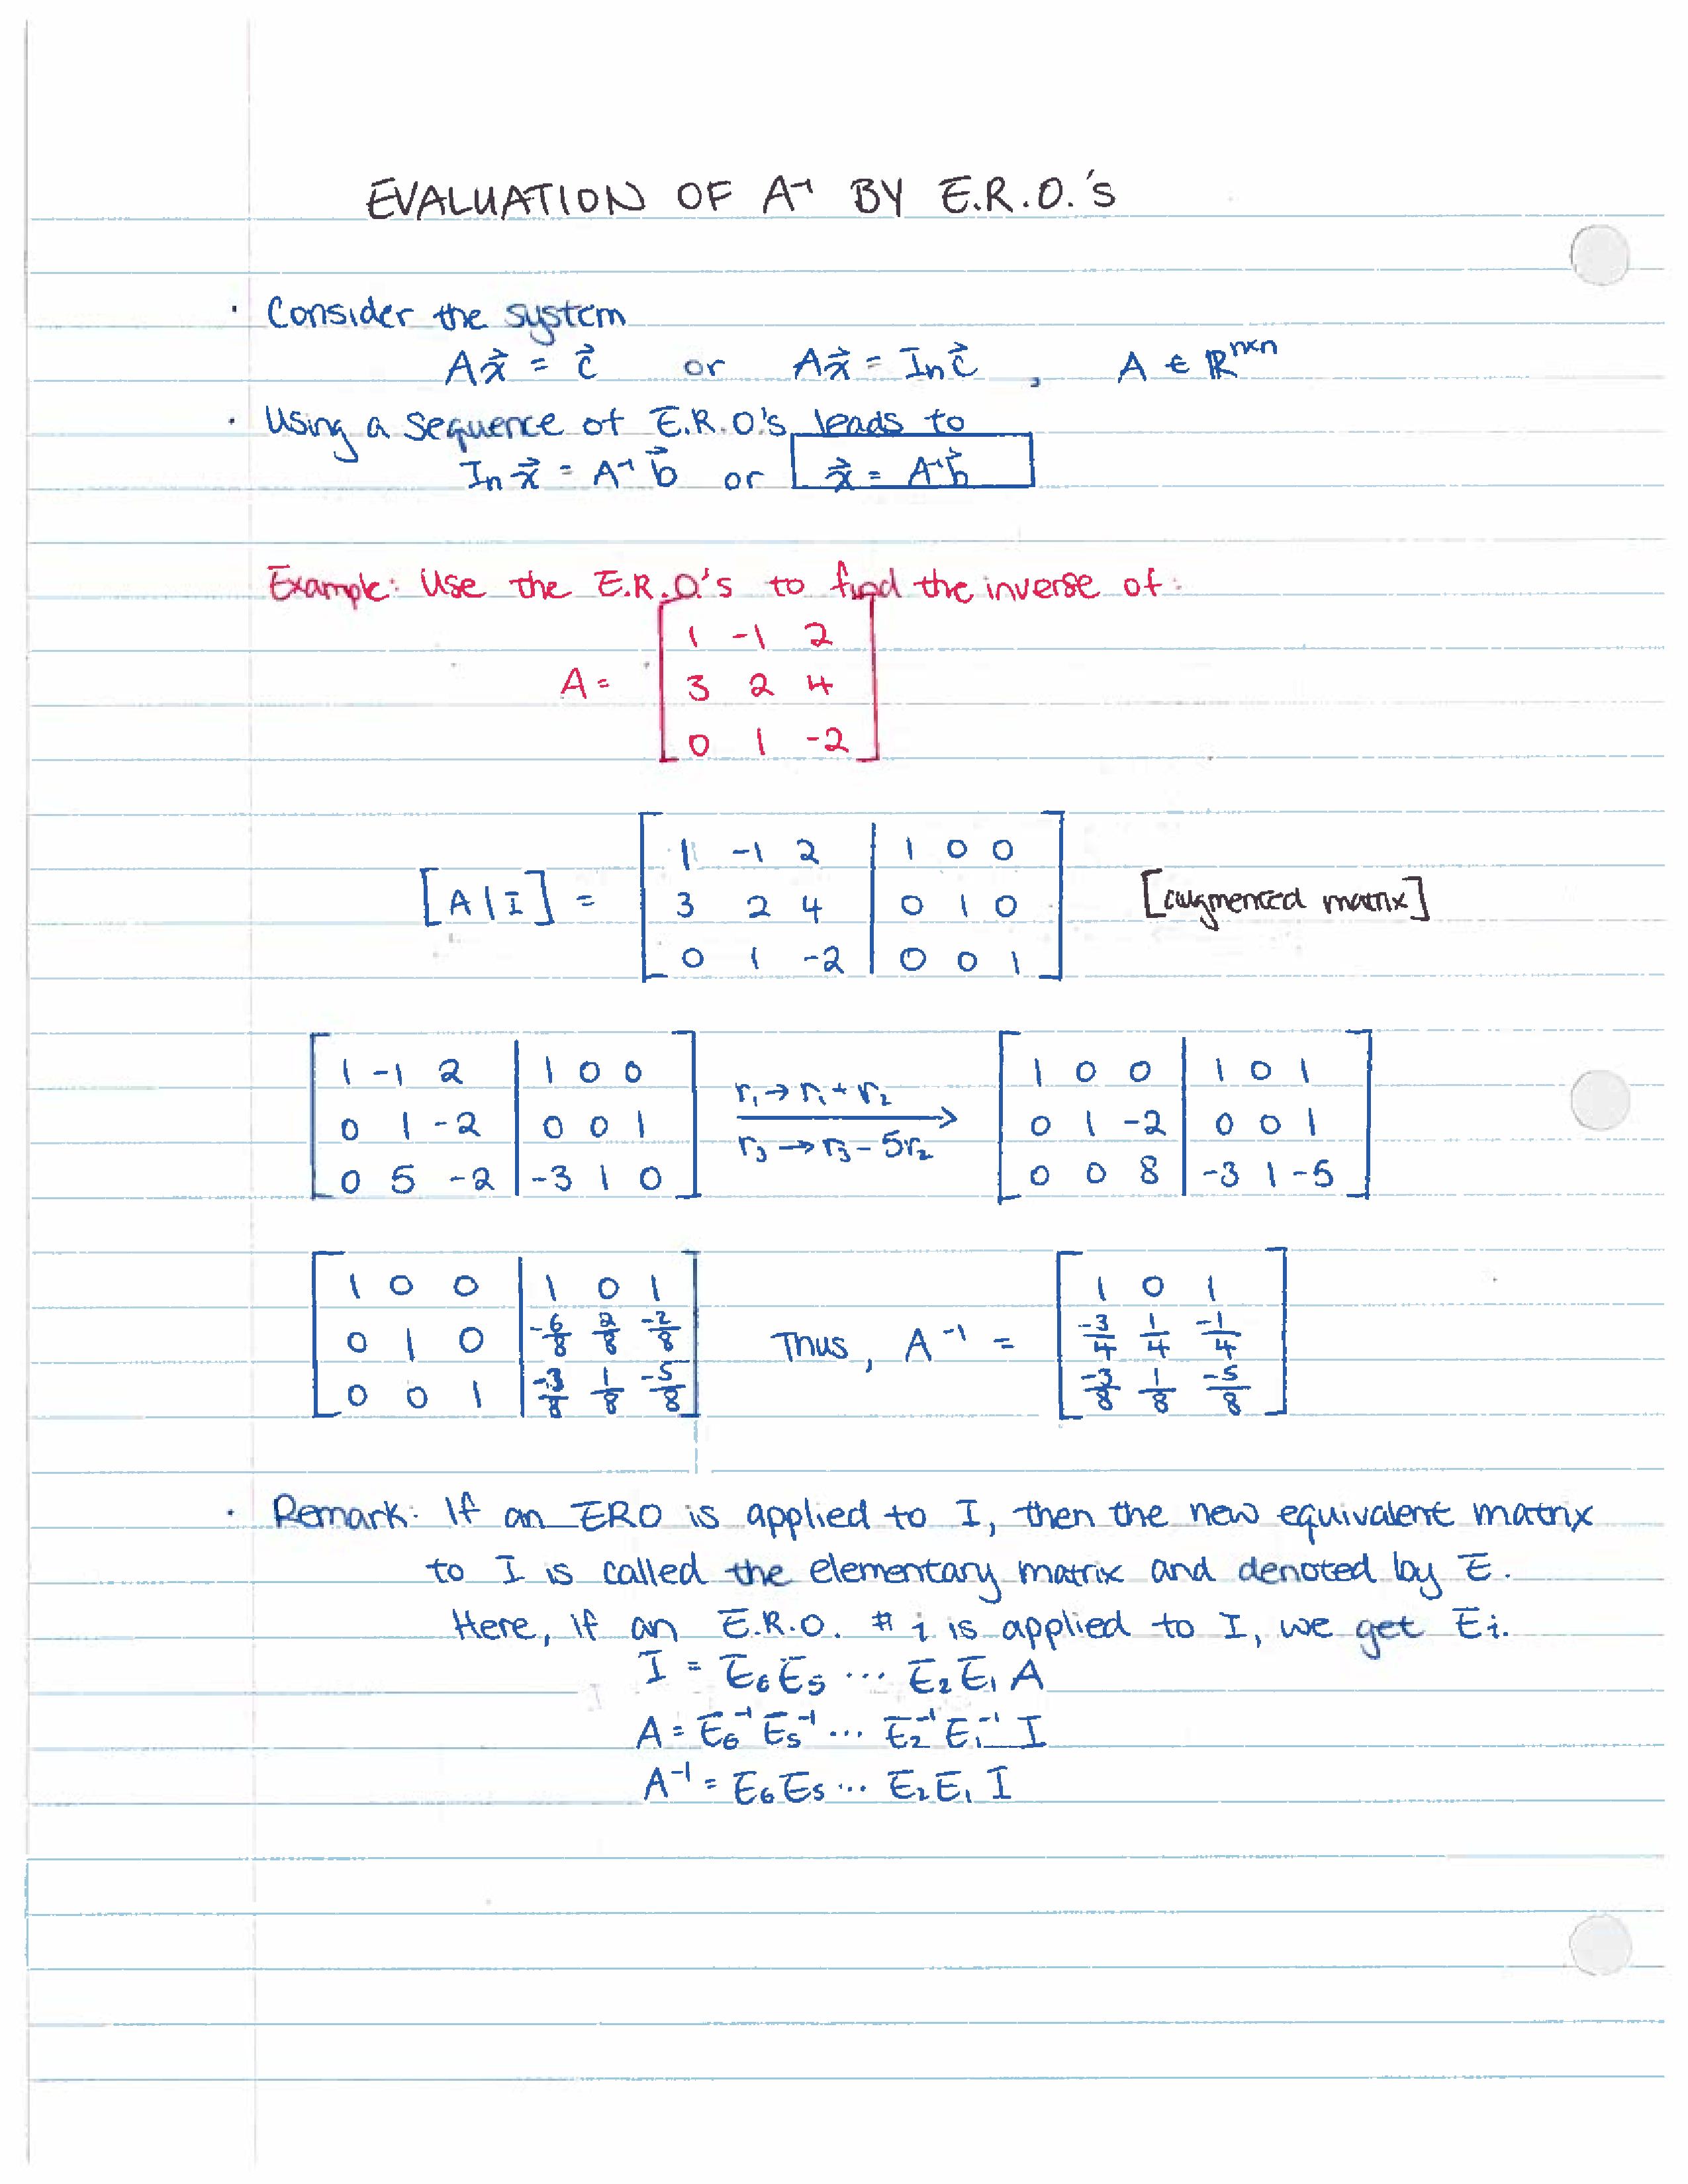 EVALUATION OF A⁻¹ BY E.R.O.'s
· Consider the system
Ax⃗ = c⃗ or Ax⃗ = Inc⃗ , A ∈ ℝⁿˣⁿ
· Using a sequence of E.R.O.'s leads to
Inx⃗ = A⁻¹b⃗ or x⃗ = A⁻¹b⃗
Example: Use the E.R.O.'s to find the inverse of:
1 -1 2
A = 3 2 4
0 1 -2
1 -1 2 | 1 0 0
[A|I] = 3 2 4 | 0 1 0 [augmented matrix]
0 1 -2 | 0 0 1
1 -1 2 | 1 0 0 r₁→r₁+r₂ 1 0 0 | 1 0 1
0 1 -2 | 0 0 1 → 0 1 -2 | 0 0 1
0 5 -2 | -3 1 0 r₃→r₃-5r₂ 0 0 8 | -3 1 -5
1 0 0 | 1 0 1 1 0 1
0 1 0 | -6/8 2/8 -2/8 Thus, A⁻¹ = -3/4 1/4 -1/4
0 0 1 | -3/8 1/8 -5/8 -3/8 1/8 -5/8
· Remark: If an ERO is applied to I, then the new equivalent matrix
to I is called the elementary matrix and denoted by E.
Here, if an E.R.O. # i is applied to I, we get Ei.
I = E₆E₅ ... E₂E₁A
A = E₆⁻¹E₅⁻¹ ... E₂⁻¹E₁⁻¹I
A⁻¹ = E₆E₅ ... E₂E₁I